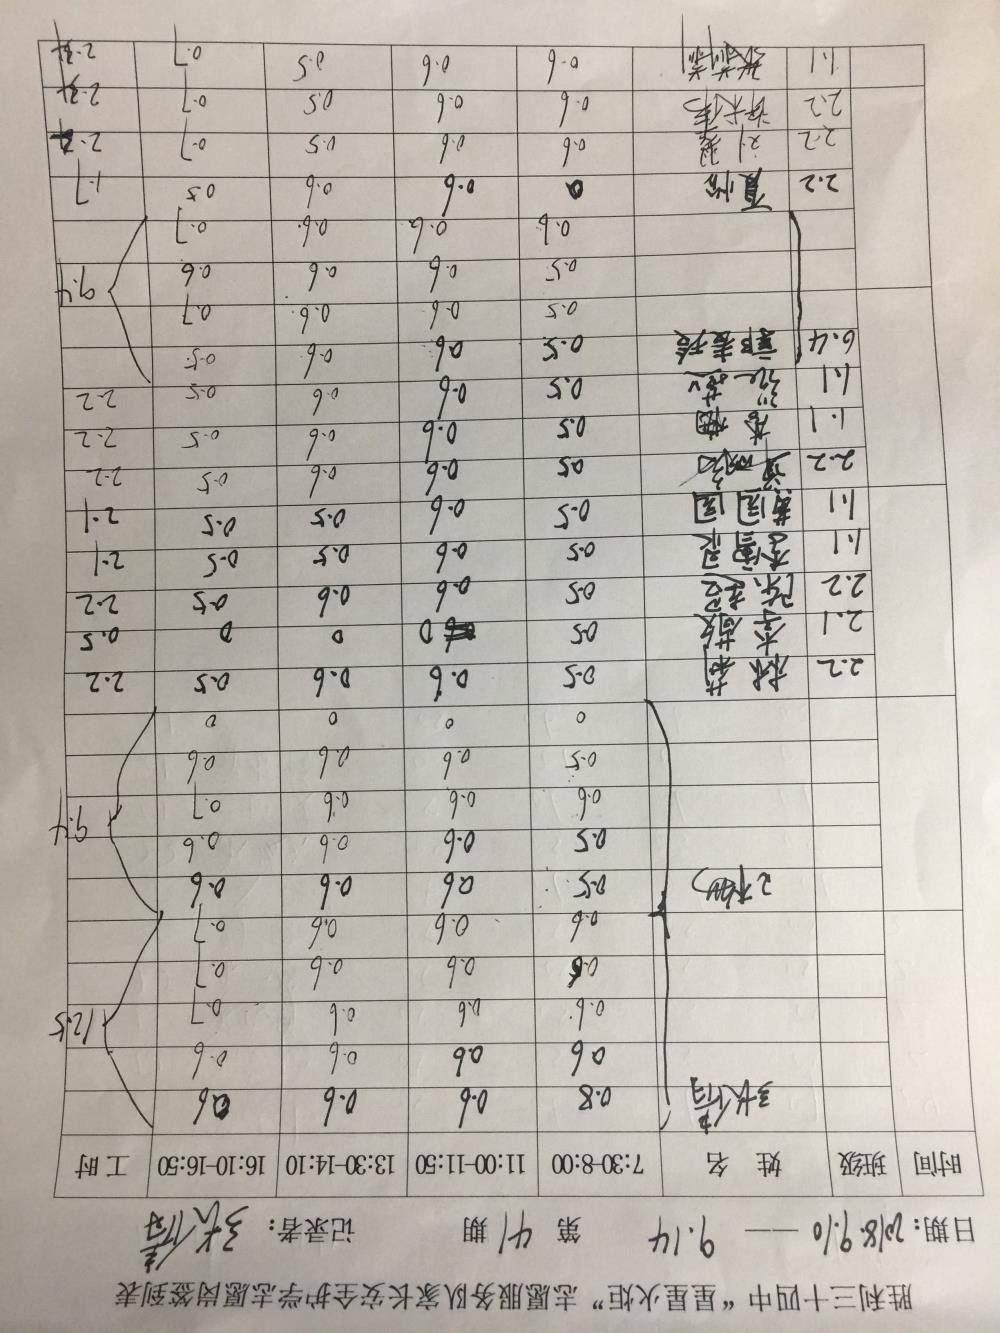 胜利三十四中“星星火炬”志愿服务队家长安全护学志愿岗签到表
日期：2018.9.10 —— 9.14 第 41 期 记录者：张倩
时间 班级 姓 名 7:30-8:00 11:00-11:50 13:30-14:10 16:10-16:50 工时
张倩 0.8 0.6 0.6 0.6
0.6 0.6 0.6 0.6
0.6 0.6 0.6 0.7 12.5
0.6 0.6 0.6 0.7
0.6 0.6 0.6 0.7
0.5 0.6 0.6 0.6
0.5 0.6 0.6 0.6
0.6 0.6 0.6 0.7 9.4
0.5 0.6 0.6 0.6
0 0 0 0
2.2 林莉 0.5 0.6 0.6 0.5 2.2
2.1 0.5 0 0 0 0.5
2.2 0.5 0.6 0.6 0.5 2.2
1.1 0.5 0.6 0.5 0.5 2.1
1.1 黄园园 0.5 0.6 0.5 0.5 2.1
2.2 0.5 0.6 0.6 0.5 2.2
1.1 0.5 0.6 0.6 0.5 2.2
1.1 0.5 0.6 0.6 0.5 2.2
6.4 郭麦玲 0.5 0.6 0.6 0.5
0.5 0.6 0.6 0.7
0.5 0.6 0.6 0.6 9.4
0.6 0.6 0.6 0.7
2.2 夏怡 0 0.6 0.6 0.5 1.7
2.2 0.6 0.6 0.5 0.7
2.2 0.6 0.6 0.5 0.7
1.1 0.6 0.6 0.5 0.7